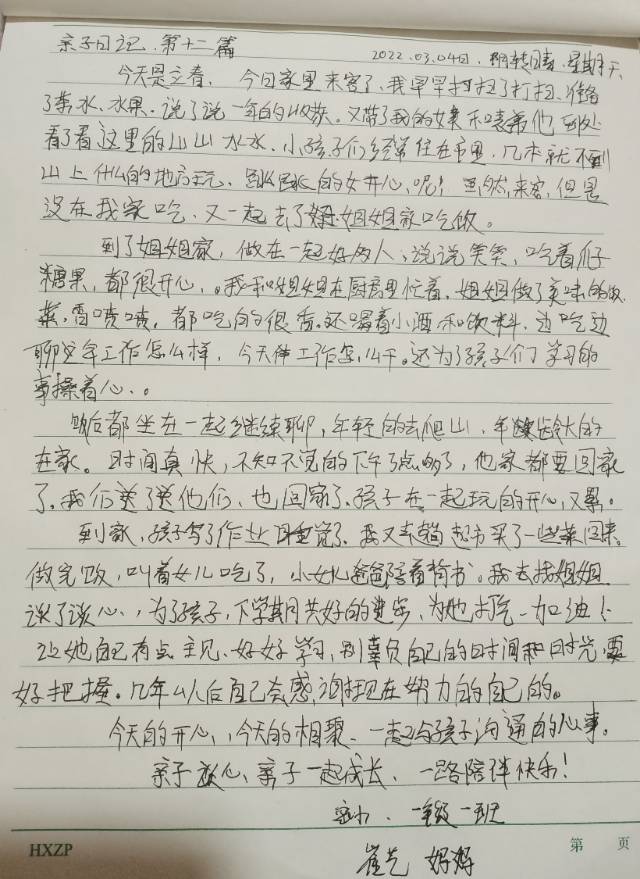 亲子日记.第十二篇
2022.03.04日.阴转晴.星期天
今天是立春、今日家里来客了、我早早打扫了打扫、准备
了茶水、水果、说了说一年的收获。又带了我的女 他到处
看了看这里的山山水水、小孩子们经常住在市里、几本就不到
山上什么的地方玩、 的开心、呢！虽然来客，但是
没在我家吃、又一起去了 姐姐家吃饭。
到了姐姐家，做在一起好两人、说说笑笑、吃着瓜子
糖果，都很开心，。我和姐姐在厨房里忙着，姐姐做了美味的饭
菜，香喷喷，都吃的很香。还喝着小酒和饮料，边吃边
聊这年工作怎么样，今天伴工作怎么干。还为了孩子们学习的
事操着心、。
饭后都坐在一起继续聊，年轻的去爬山、年龄大的
在家。时间真快，不知不觉的下午了点的了，他家都要回家
了、我们送了送他们、也回家了、孩子在一起玩的开心，又累。
到家，孩子写了作业 觉了、我又去 超市买了一些菜回来，
做完饭，叫着女儿吃了，小女儿爸爸陪着背书。我去找姐姐
谈了谈心、，为了孩子，下学期共好的进步，为她打气-加油！
让她自己有点主见、好好学习，别辜负自己的时间和时光，要
好把握。几年以后自己会感谢现在努力的自己的。
今天的开心、，今天的相聚、一起与孩子沟通的心事。
亲子谈心、亲子一起成长、一路陪伴快乐！
一级一班
崔艺 妈妈
HXZP
第 页